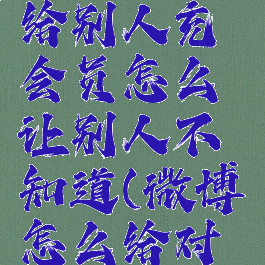 给别人充
会员怎么
让别人不
知道(微博
怎么给对